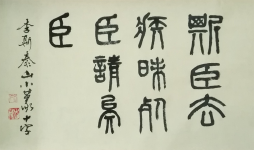 斯臣去
疾昧死
臣請矣
臣
李斯泰山小篆十字